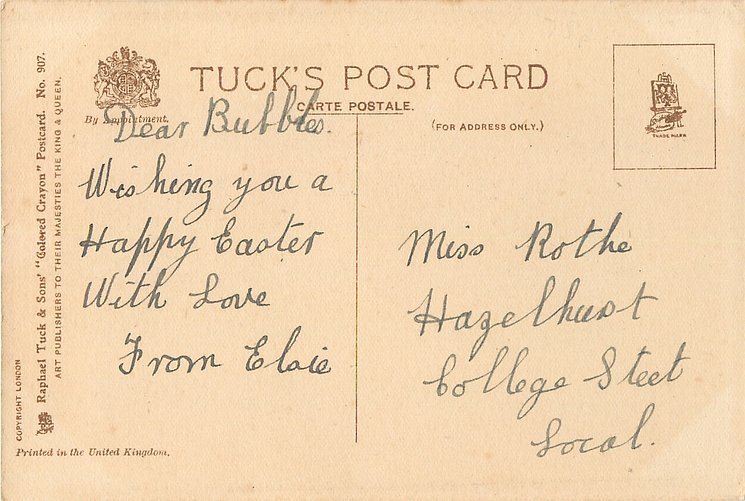 TUCK'S POST CARD
CARTE POSTALE.
(FOR ADDRESS ONLY.)
By Appointment.
TRADE MARK
Dear Bubbles.
Wishing you a
Happy Easter
With Love
From Elsie
Miss Rothe
Hazelhurst
College Steet
Local.
COPYRIGHT LONDON
Raphael Tuck & Sons' "Colored Crayon" Postcard. No. 907.
ART PUBLISHERS TO THEIR MAJESTIES THE KING & QUEEN.
Printed in the United Kingdom.